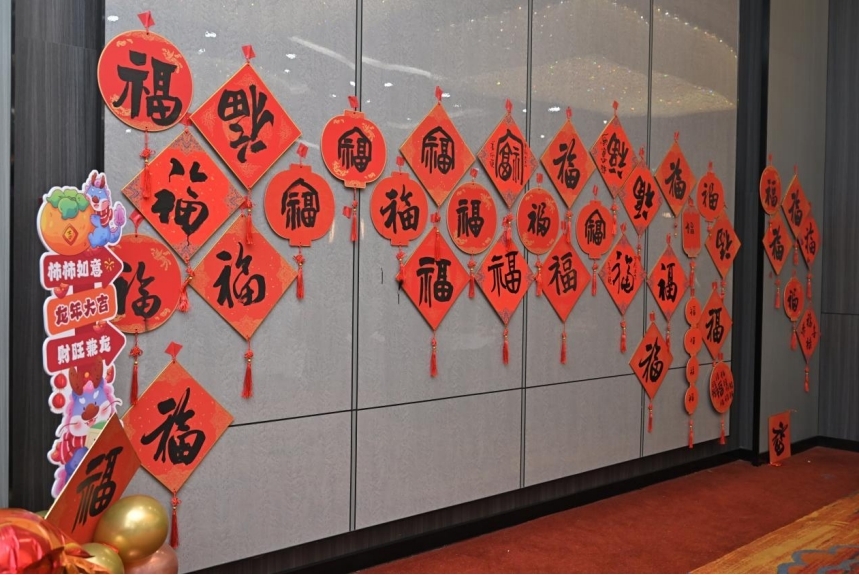 柿柿如意
龙年大吉
财旺兼龙
福
福
福
福
福
福
福
福
福
福
福
福
福
福
福
福
福
福
福
福
福
福
福
福
福
福
福
福
福
福
福